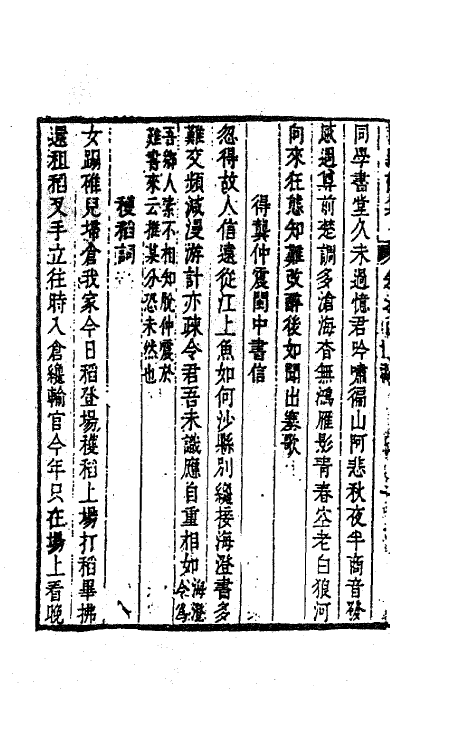 同學書堂久未過憶君吟嘯福山阿悲秋夜半商音發
感遇尊前楚調多滄海杳無鴻雁影青春空老白狼河
向來狂態知難改醉後如聞出塞歌
得龔仲震閩中書信
忽得故人信遠從江上魚如何沙縣別纔接海澄書多
難交頻減漫游計亦疎令君吾未識應自重相如海澄令爲
吾鄉人素不相知脫仲震於
難書來云推某分恐未然也
穫稻詞
女踢碓兒埽倉我家今日稻登場穫稻上場打稻畢拂
還租稻叉手立往時入倉纔輸官今年只在場上看晚